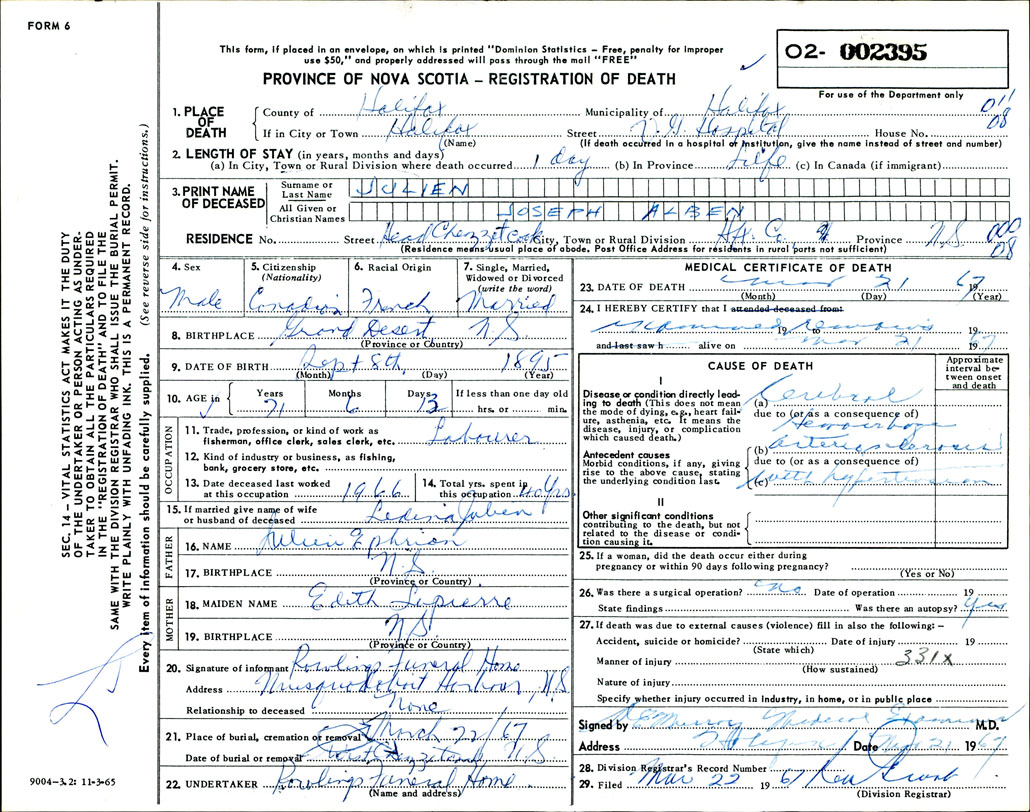 FORM 6
This form, if placed in an envelope, on which is printed "Dominion Statistics – Free, penalty for improper
use $50," and properly addressed will pass through the mail "FREE"
PROVINCE OF NOVA SCOTIA – REGISTRATION OF DEATH
O2- 002395
For use of the Department only
011
08
1. PLACE OF DEATH
County of Halifax Municipality of Halifax
If in City or Town Halifax Street V.G. Hospital House No.
(Name) (If death occurred in a hospital or institution, give the name instead of street and number)
2. LENGTH OF STAY (in years, months and days)
(a) In City, Town or Rural Division where death occurred 1 day (b) In Province Life (c) In Canada (if immigrant)
3. PRINT NAME OF DECEASED
Surname or Last Name JULIEN
All Given or Christian Names JOSEPH ALBEN
RESIDENCE No. Street Head Chezzetcook City, Town or Rural Division Hfx. Co. Province N.S. 000
08
(Residence means usual place of abode. Post Office Address for residents in rural parts not sufficient)
4. Sex
Male
5. Citizenship
(Nationality)
Canadian
6. Racial Origin
French
7. Single, Married,
Widowed or Divorced
(write the word)
Married
8. BIRTHPLACE Grand Desert N.S.
(Province or Country)
9. DATE OF BIRTH Sept 8th 1895
(Month) (Day) (Year)
10. AGE in Years Months Days If less than one day old
71 6 13 hrs. or min.
OCCUPATION
11. Trade, profession, or kind of work as
fisherman, office clerk, sales clerk, etc. Labourer
12. Kind of industry or business, as fishing,
bank, grocery store, etc.
13. Date deceased last worked
at this occupation 1966
14. Total yrs. spent in
this occupation 40 yrs
15. If married give name of wife
or husband of deceased Ledina Julien
FATHER
16. NAME Julien Ephrian
17. BIRTHPLACE N.S.
(Province or Country)
MOTHER
18. MAIDEN NAME Edith Lapierre
19. BIRTHPLACE N.S.
(Province or Country)
20. Signature of informant Rowlings Funeral Home
Address Musquodoboit Harbour, N.S
Relationship to deceased None
21. Place of burial, cremation or removal March 22/67
Date of burial or removal West Chezzetcook N.S
22. UNDERTAKER Rowlings Funeral Home
(Name and address)
MEDICAL CERTIFICATE OF DEATH
23. DATE OF DEATH Mar 21 1967
(Month) (Day) (Year)
24. I HEREBY CERTIFY that I attended deceased from:
examined 19 to remains 19
and last saw h alive on Mar 21 1967
CAUSE OF DEATH
Approximate
interval be-
tween onset
and death
I
Disease or condition directly lead-
ing to death (This does not mean
the mode of dying, e.g., heart fail-
ure, asthenia, etc. It means the
disease, injury, or complication
which caused death.)
(a) Cerebral
due to (or as a consequence of)
Hemorrhage
Antecedent causes
Morbid conditions, if any, giving
rise to the above cause, stating
the underlying condition last.
(b) arteriosclerosis
due to (or as a consequence of)
(c) with hypertension
II
Other significant conditions
contributing to the death, but not
related to the disease or condi-
tion causing it.
25. If a woman, did the death occur either during
pregnancy or within 90 days following pregnancy?
(Yes or No)
26. Was there a surgical operation? No Date of operation 19
State findings Was there an autopsy? Yes
27. If death was due to external causes (violence) fill in also the following: –
Accident, suicide or homicide? Date of injury 19
(State which)
Manner of injury 331x
(How sustained)
Nature of injury
Specify whether injury occurred in industry, in home, or in public place
Signed by Murray Medical Examiner M.D.
Address Date Mar 21 1967
28. Division Registrar's Record Number
29. Filed Mar 22 1967
(Division Registrar)
SEC. 14 – VITAL STATISTICS ACT MAKES IT THE DUTY
OF THE UNDERTAKER OR PERSON ACTING AS UNDER-
TAKER TO OBTAIN ALL THE PARTICULARS REQUIRED
IN THE "REGISTRATION OF DEATH" AND TO FILE THE
SAME WITH THE DIVISION REGISTRAR WHO SHALL ISSUE THE BURIAL PERMIT.
WRITE PLAINLY WITH UNFADING INK. THIS IS A PERMANENT RECORD.
Every item of information should be carefully supplied. (See reverse side for instructions.)
9004-3.2: 11-3-65